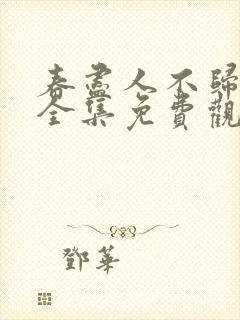 春盡人不歸
全集免費觀
鄧華